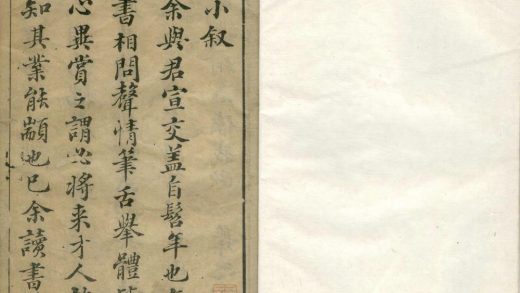 小叙
余與君宣交盖自髫年也
書相問聲情筆舌舉體
心異賞之謂必将来才人
知其業能顓也已余讀書